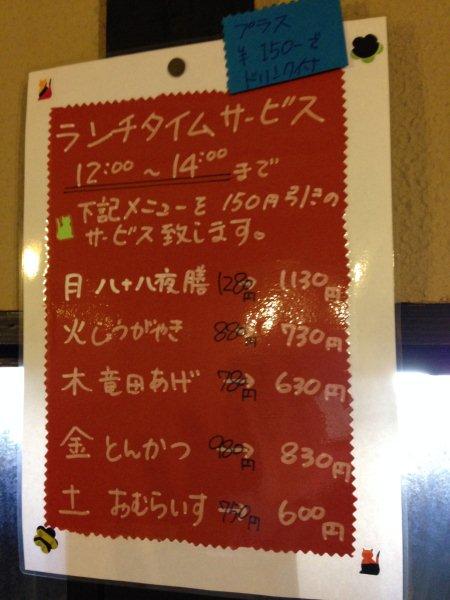 プラス
¥150-で
ドリンク付
ランチタイムサービス
12:00～14:00まで
下記メニューを150円引きの
サービス致します。
月 八十八夜膳 1280円 1130円
火 しょうがやき 880円 730円
木 竜田あげ 780円 630円
金 とんかつ 980円 830円
土 おむらいす 750円 600円